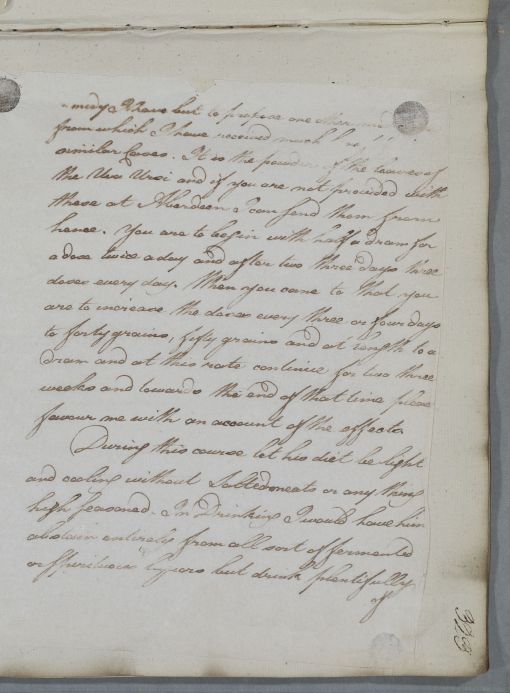 -medy I have but to propose one other
from which I have received much
similar Cases. It is the powder of the leaves of
the Uva Ursi and if you are not provided with
these at Aberdeen I can send them from
hence. You are to begin with half a dram for
a dose twice a day and after two three days three
doses every day. When you come to that you
are to increase the doses every three or four days
to forty grains, fifty grains and at length to a
dram and at this rate continue for two three
weeks and towards the end of that time please
favour me with an account of the effects
During this course let his diet be light
and cooling without Salted meats or any thing
high seasoned. In Drinking I would have him
abstain entirely from all sort of fermented
or Spirituous liquors but drink plentifully
of